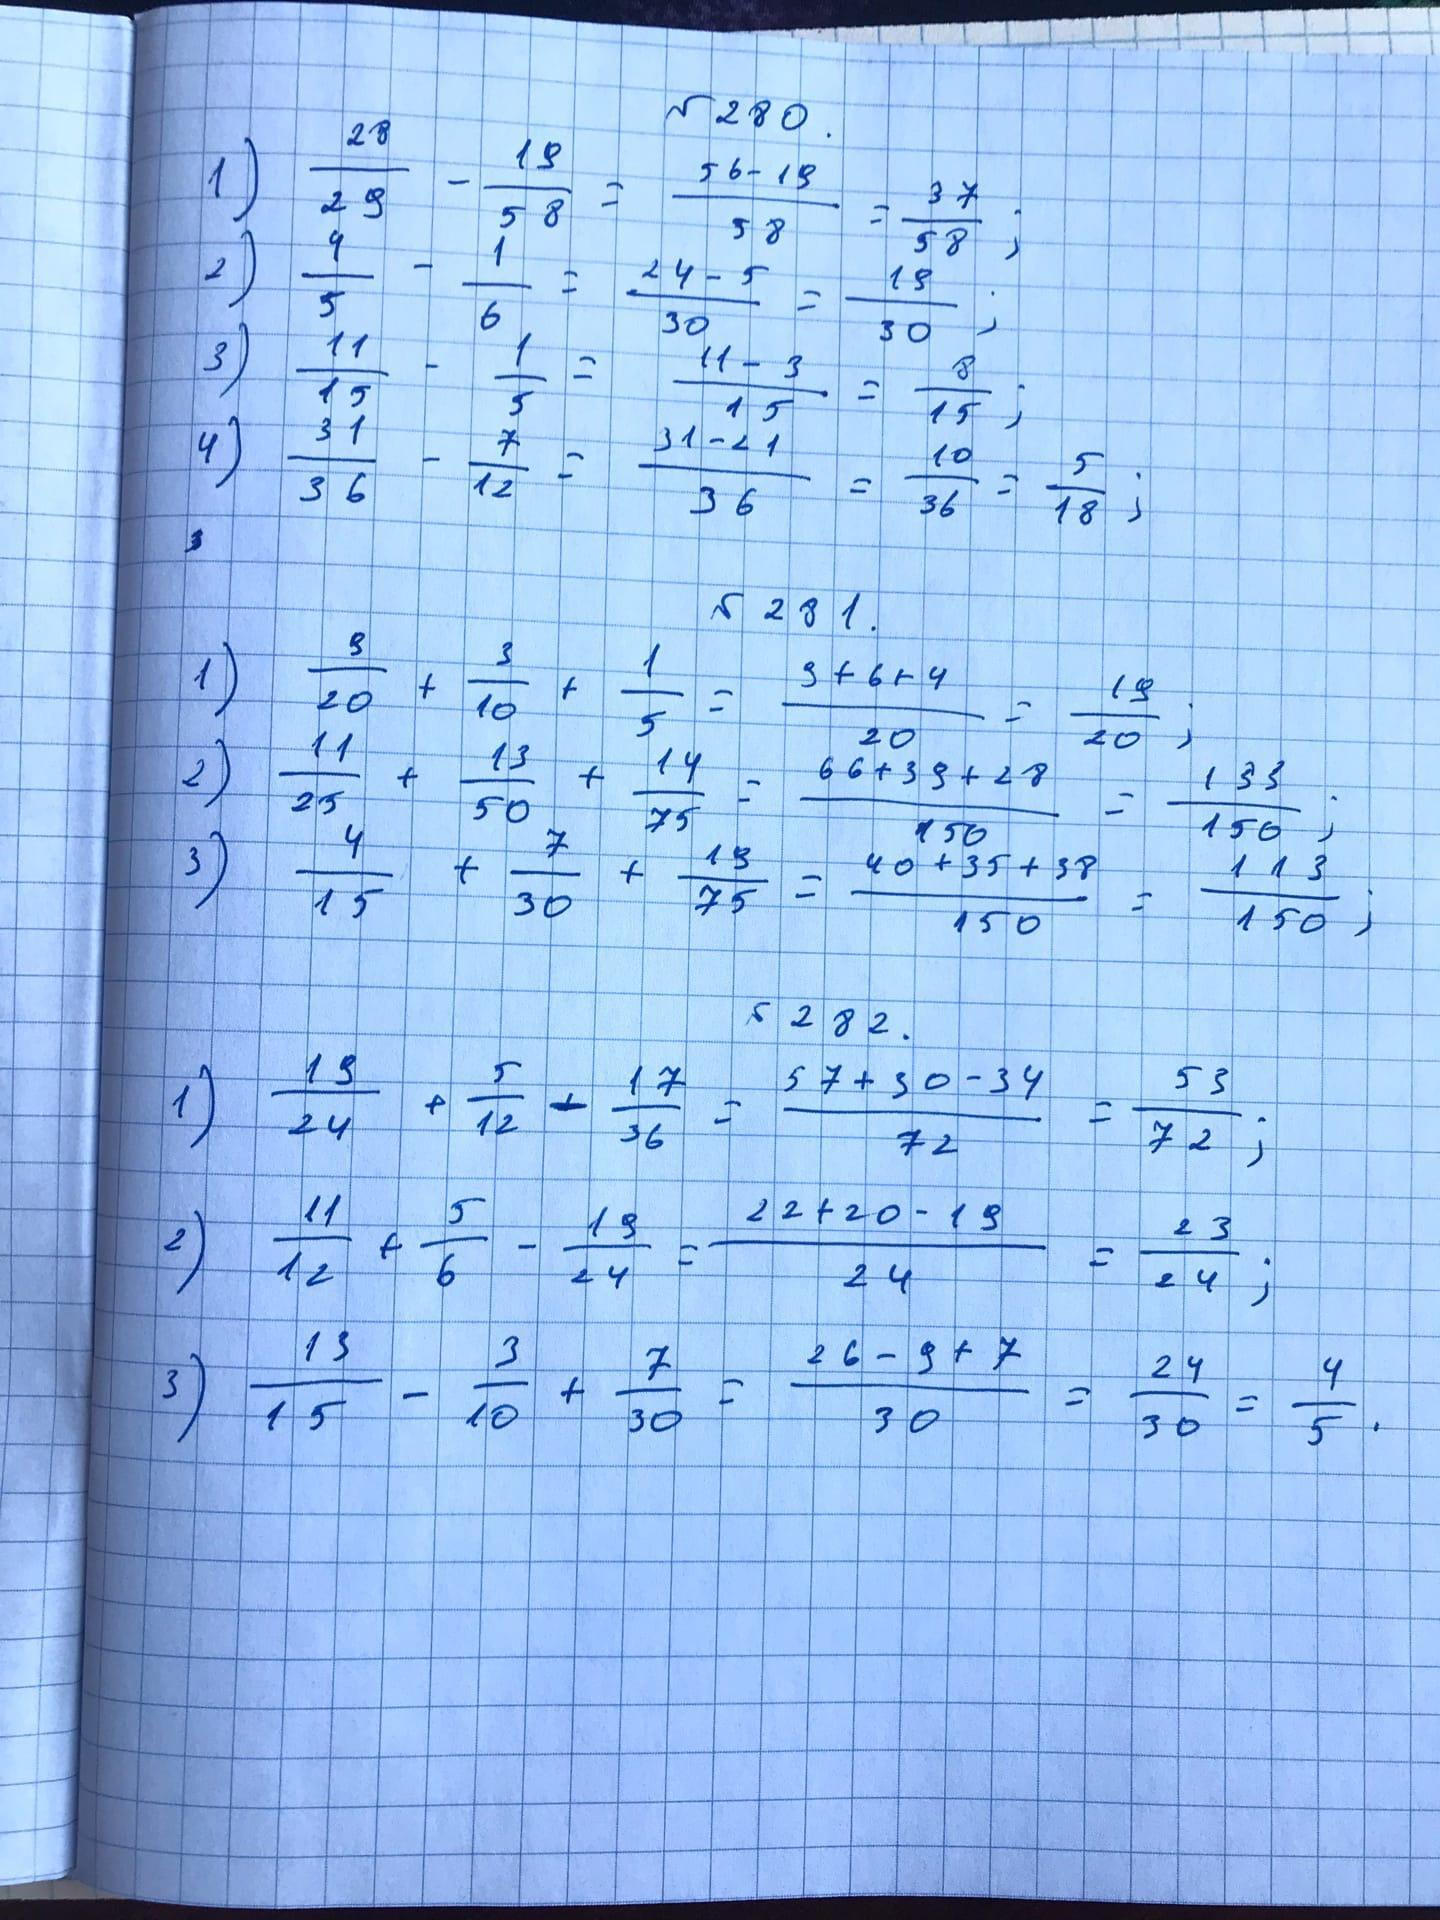 № 280.
1) 28/29 - 19/58 = (56-19)/58 = 37/58;
2) 4/5 - 1/6 = (24-5)/30 = 19/30;
3) 11/15 - 1/5 = (11-3)/15 = 8/15;
4) 31/36 - 7/12 = (31-21)/36 = 10/36 = 5/18;
№ 281.
1) 9/20 + 3/10 + 1/5 = (9+6+4)/20 = 19/20;
2) 11/25 + 13/50 + 14/75 = (66+39+28)/150 = 133/150;
3) 4/15 + 7/30 + 19/75 = (40+35+38)/150 = 113/150;
№ 282.
1) 19/24 + 5/12 - 17/36 = (57+30-34)/72 = 53/72;
2) 11/12 + 5/6 - 19/24 = (22+20-19)/24 = 23/24;
3) 13/15 - 3/10 + 7/30 = (26-9+7)/30 = 24/30 = 4/5.